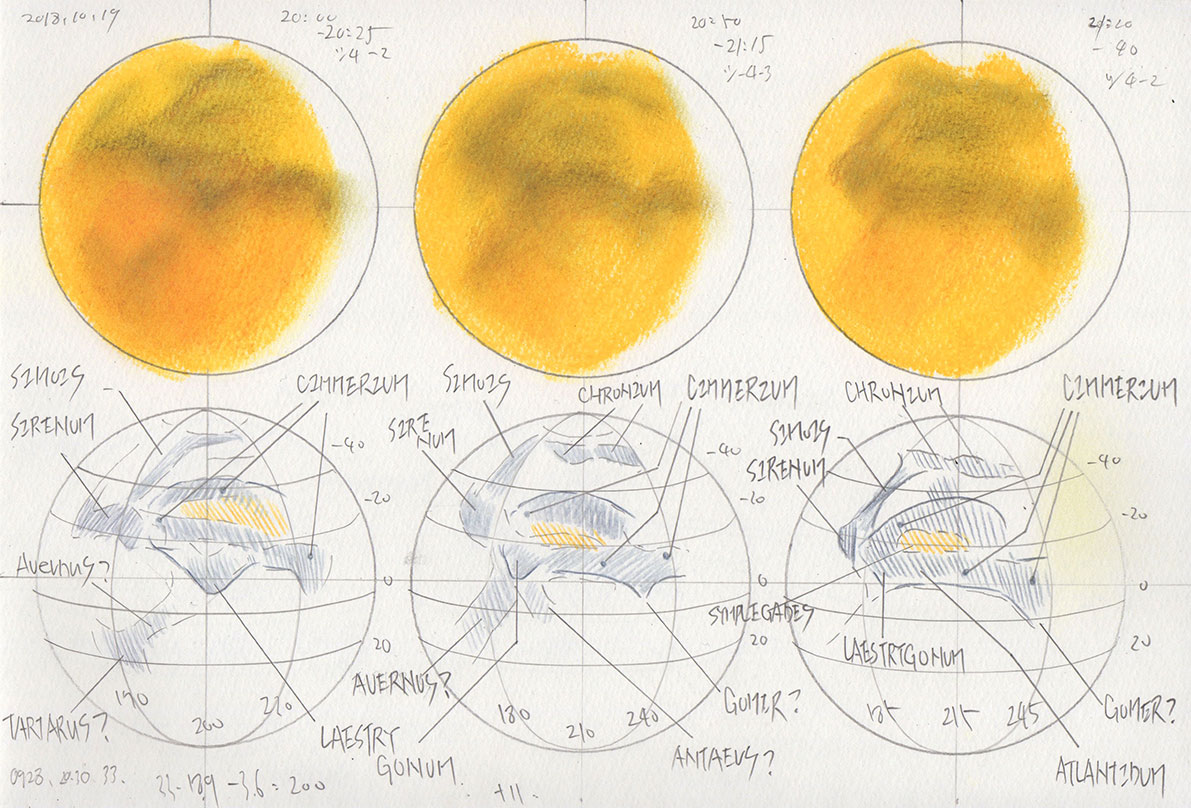 2018.10.19
20:00
-20:25
4-2
20:50
-21:15
-4-3
21:20
- 40
4-2
SIMOIS
SIRENUM
CIMMERIUM
SIMOIS
CHRONIUM
CIMMERIUM
SIRE
NUM
CHRONIUM
CIMMERIUM
SIMOIS
SIRENUM
-40
-20
0
20
-40
-20
0
20
-40
-20
0
20
Avernus?
SYMPLEGADES
LAESTRYGONUM
AVERNUS?
190
200
220
180
210
240
185
215
245
TARTARUS?
LAESTRY
GONUM
GOMER?
ANTAEUS?
GOMER?
ATLANTIDUM
33-189 -3.6 = 200
+11.